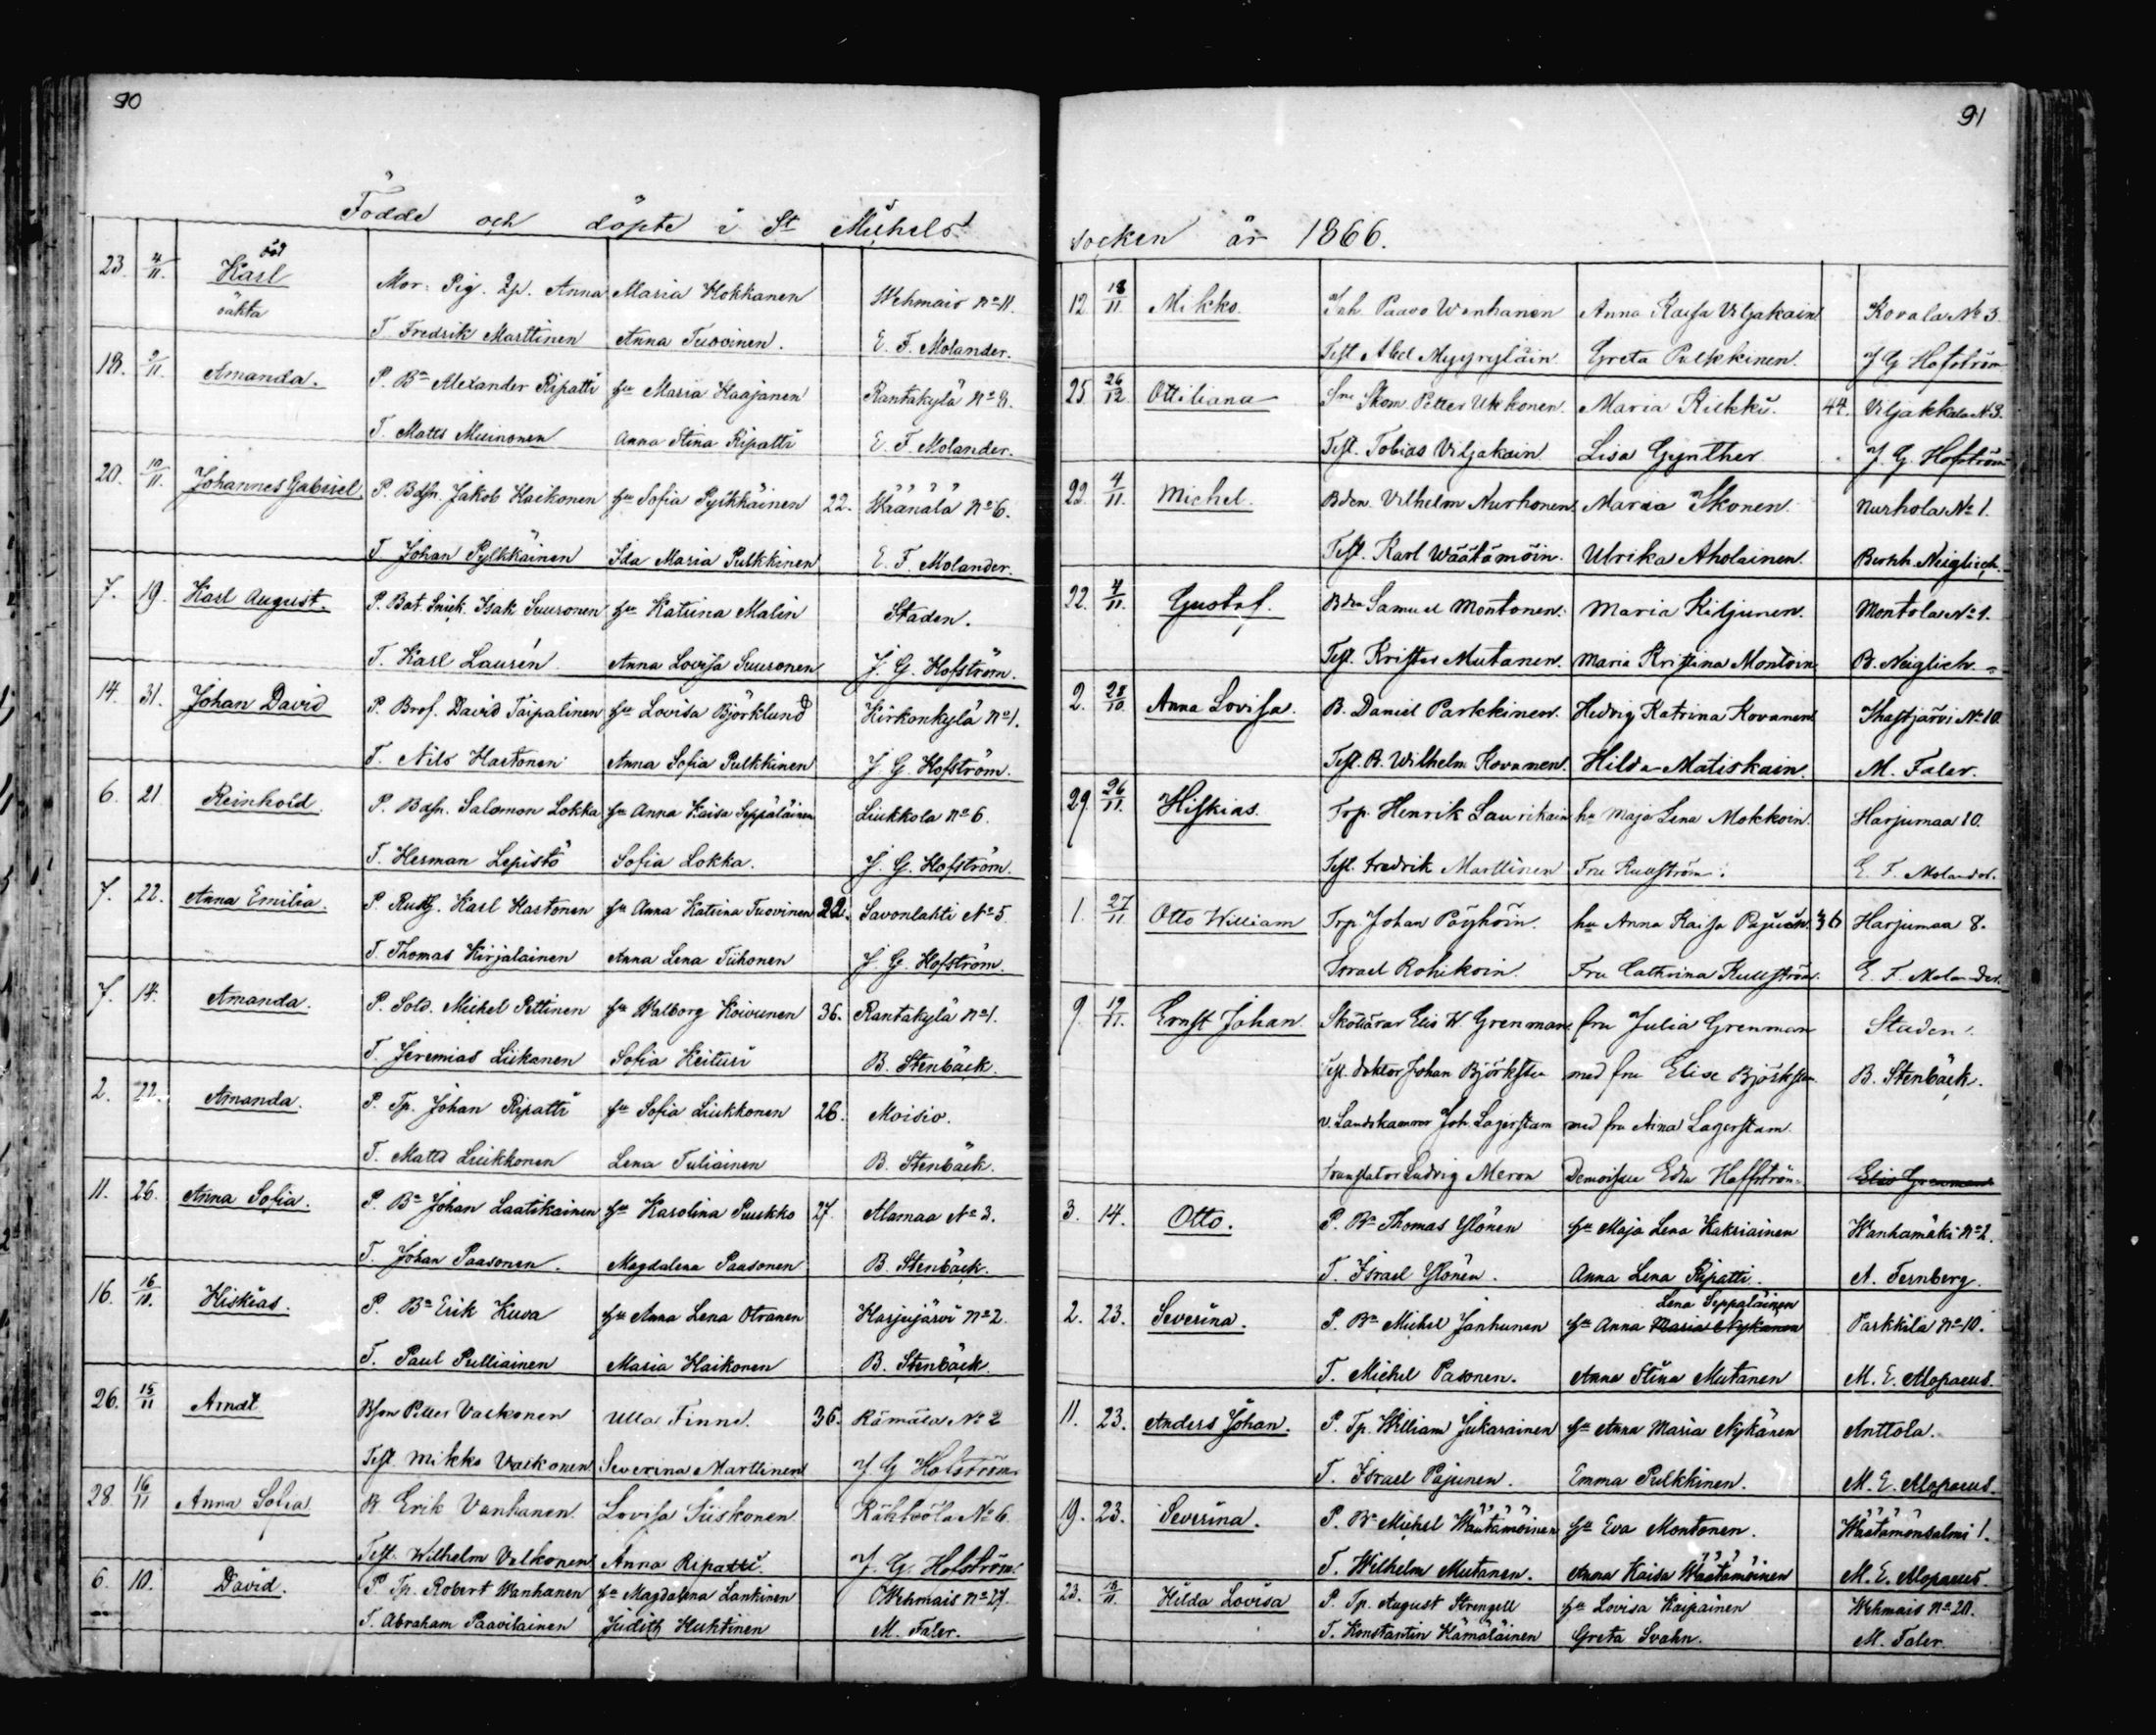 90
Födde och döpte i St Michels
23. 4/11. Karl Mor: Pig. Anna Maria Kokkanen Wehmais No 11.
oäkta T. Fredrik Marttinen Anna Tuovinen. E. F. Molander.
18. 9/11. Amanda. P. Bn Alexander Ripatti hu Maria Haajanen Rantakylä No 8.
T. Matts Muinonen Anna Stina Ripatti E. F. Molander.
20. 10/11. Johannes Gabriel. P. Bdsn. Jakob Haikonen hu Sofia Pylkkäinen 22. Wäänälä No 6.
T. Johan Pylkkäinen Ida Maria Pulkkinen E. F. Molander.
7. 19. Karl August. P. Bat. Snick. Isak Suuronen hu Katrina Malin Staden.
T. Karl Laurén Anna Lovisa Suuronen J. G. Hofström.
14. 31. Johan David P. Brof. David Taipalinen hu Lovisa Björklund Kirkonkylä No 1.
T. Nils Hartonen Anna Sofia Pulkkinen J. G. Hofström.
6. 21. Reinhold. P. Bdsn. Salomon Lokka hu Anna Kaisa Seppäläinen Liukkola No 6.
T. Herman Lepistö Sofia Lokka. J. G. Hofström.
7. 22. Anna Emilia. P. Rusth. Karl Hartonen hu Anna Katrina Tuovinen 22. Savonlahti No 5.
T. Thomas Kirjalainen Anna Lena Tiihonen J. G. Hofström.
7. 14. Amanda. P. Sold. Michel Pettinen hu Walborg Koivunen 36. Rantakylä No 1.
T. Jeremias Liikanen Sofia Keituri B. Stenbäck.
2. 22. Amanda. P. Tp. Johan Ripatti hu Sofia Liukkonen 26. Moisio.
T. Matts Liukkonen Lena Tuliainen B. Stenbäck.
11. 26. Anna Sofia. P. Bn Johan Laatikainen hu Karolina Puukko 27. Alamaa No 3.
T. Johan Paasonen. Magdalena Paasonen B. Stenbäck.
16. 16/11. Hiskias. P. Bn Erik Kuva hu Anna Lena Otranen Harjujärvi No 2.
T. Paul Pulliainen Maria Haikonen B. Stenbäck.
26. 15/11 Arndt Bson Petter Vaikonen Ulla Finne. 36. Rämälä No 2
Test. Mikko Vaikonen Severina Marttinen J. G. Hofström.
28. 16/11 Anna Sofia B. Erik Vanhanen. Lovisa Siiskonen No 6.
Test. Wilhelm Valkonen Anna Ripatti. J. G. Hofström.
6. 10. David. P. Tp. Robert Wanhanen hu Magdalena Lankinen Wehmais No 27.
T. Abraham Paavilainen Judith Huhtinen M. Faler.
91
socken år 1866.
12. 18/11. Mikko. Inh. Paavo Wanhanen Anna Kaisa Viljakain Kovala No 3.
Test. Abel Myyryläin Greta Pulkkinen. J G Hofström
25. 26/12. Ottiliana Skom. Petter Ukkonen. Maria Kiekki. 44. Viljakkala No 3.
Test. Tobias Viljakain Lisa Gynther J. G. Hofström
22. 4/11. Michel. Bden. Vilhelm Nurhonen. Maria Ikonen. Nurhola No 1.
Test. Karl Wäätämöin. Ulrika Aholainen. Bernh. Neiglich.
22. 4/11. Gustaf. Bden Samuel Montonen. Maria Kiljunen. Montola No 1.
Test. Krister Mutanen. Maria Kristina Montoin. B. Neiglich.
2. 28/10. Anna Lovisa. B. Daniel Parkkinen. Hedvig Katrina Kovanen. Ihastjärvi No 10.
Test. B. Wilhelm Kovanen. Hilda Matiskain. M. Faler.
29. 26/11. Hiskias. Trp. Henrik Laurikain hu Maja Lena Mokkoin. Harjumaa 10.
Test. Fredrik Marttinen Fru Kullström. E. F. Molander.
1. 27/11 Otto William Trp. Johan Pöyhöin. hu Anna Kaisa Pajuin. 36 Harjumaa 8.
Israel Rohikoin. Fru Cathrina Kullström. E. F. Molander.
9. 19/11. Ernst Johan. Elis W. Grenman fru Julia Grenman Staden.
Test. Doktor Johan Björksten med fru Elise Björksten B. Stenbäck.
v. Landskamrer Joh. Lagerstam med fru Aina Lagerstam.
Translator Ludvig Meron Demoiselle Edla Hoffström Elis Grenman
3. 14. Otto. P. Bn Thomas Ylönen hu Maja Lena Kaksiainen Wanhamäki No 2.
T. Israel Ylönen. Anna Lena Ripatti. A. Fernberg.
Lena Seppäläinen
2. 23. Severina. P. Bn Michel Janhunen hu Anna Maria Nykänen Parkkila No 10.
T. Michel Pasonen. Anna Stina Mutanen M. E. Alopaeus.
11. 23. Anders Johan. P. Tp. William Jukarainen hu Anna Maria Nykänen Anttola.
T. Israel Pajunen. Emma Pulkkinen. M. E. Alopaeus.
19. 23. Severina. P. Bn Michel Wäätämöinen hu Eva Montonen. Wäätämönsalmi 1.
T. Wilhelm Mutanen. Anna Kaisa Wäätämöinen M. E. Alopaeus.
23. 18/11. Hilda Lovisa P. Tp. August Strengell hu Lovisa Kaipainen Wehmais No 20.
T. Konstantin Hämäläinen Greta Svahn. M. Faler.